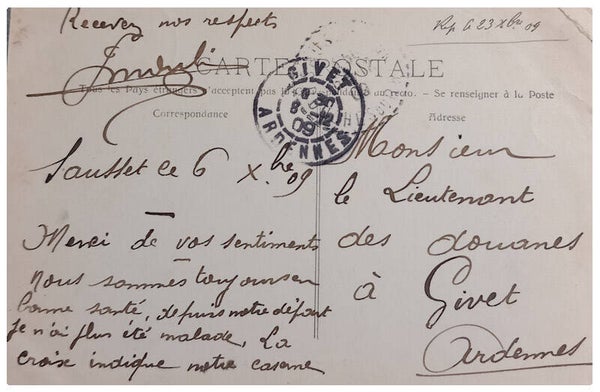 Recevez nos respects
Rep le 23 Xbre 09
CARTE POSTALE
Tous les Pays étrangers n'acceptent pas la au recto. — Se renseigner à la Poste
Correspondance
Adresse
GIVET
09
ARDENNES
Sausset ce 6 Xbre 09
Merci de vos sentiments
Nous sommes toujours en
bonne santé, depuis notre départ
je n'ai plus été malade. La
croix indique notre caserne
Monsieur
le Lieutenant
des douanes
à Givet
Ardennes